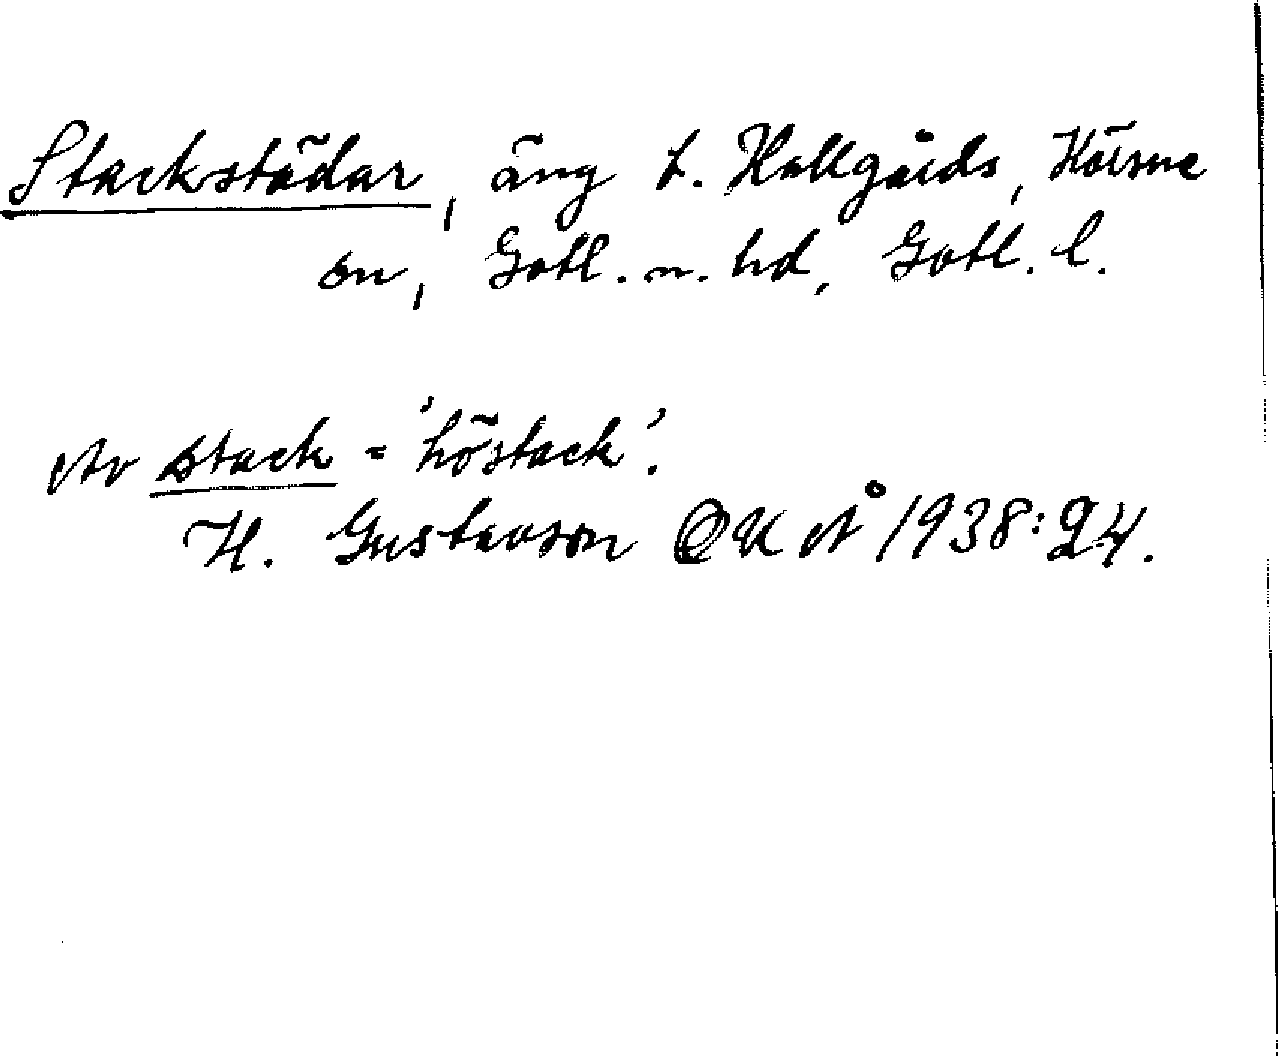 Stackstädar, äng t. Hallgårds, Hörsne
sn, Gotl. n. hd, Gotl. l.
Av stack = 'höstack'.
H. Gustavson OUÅ 1938:24.